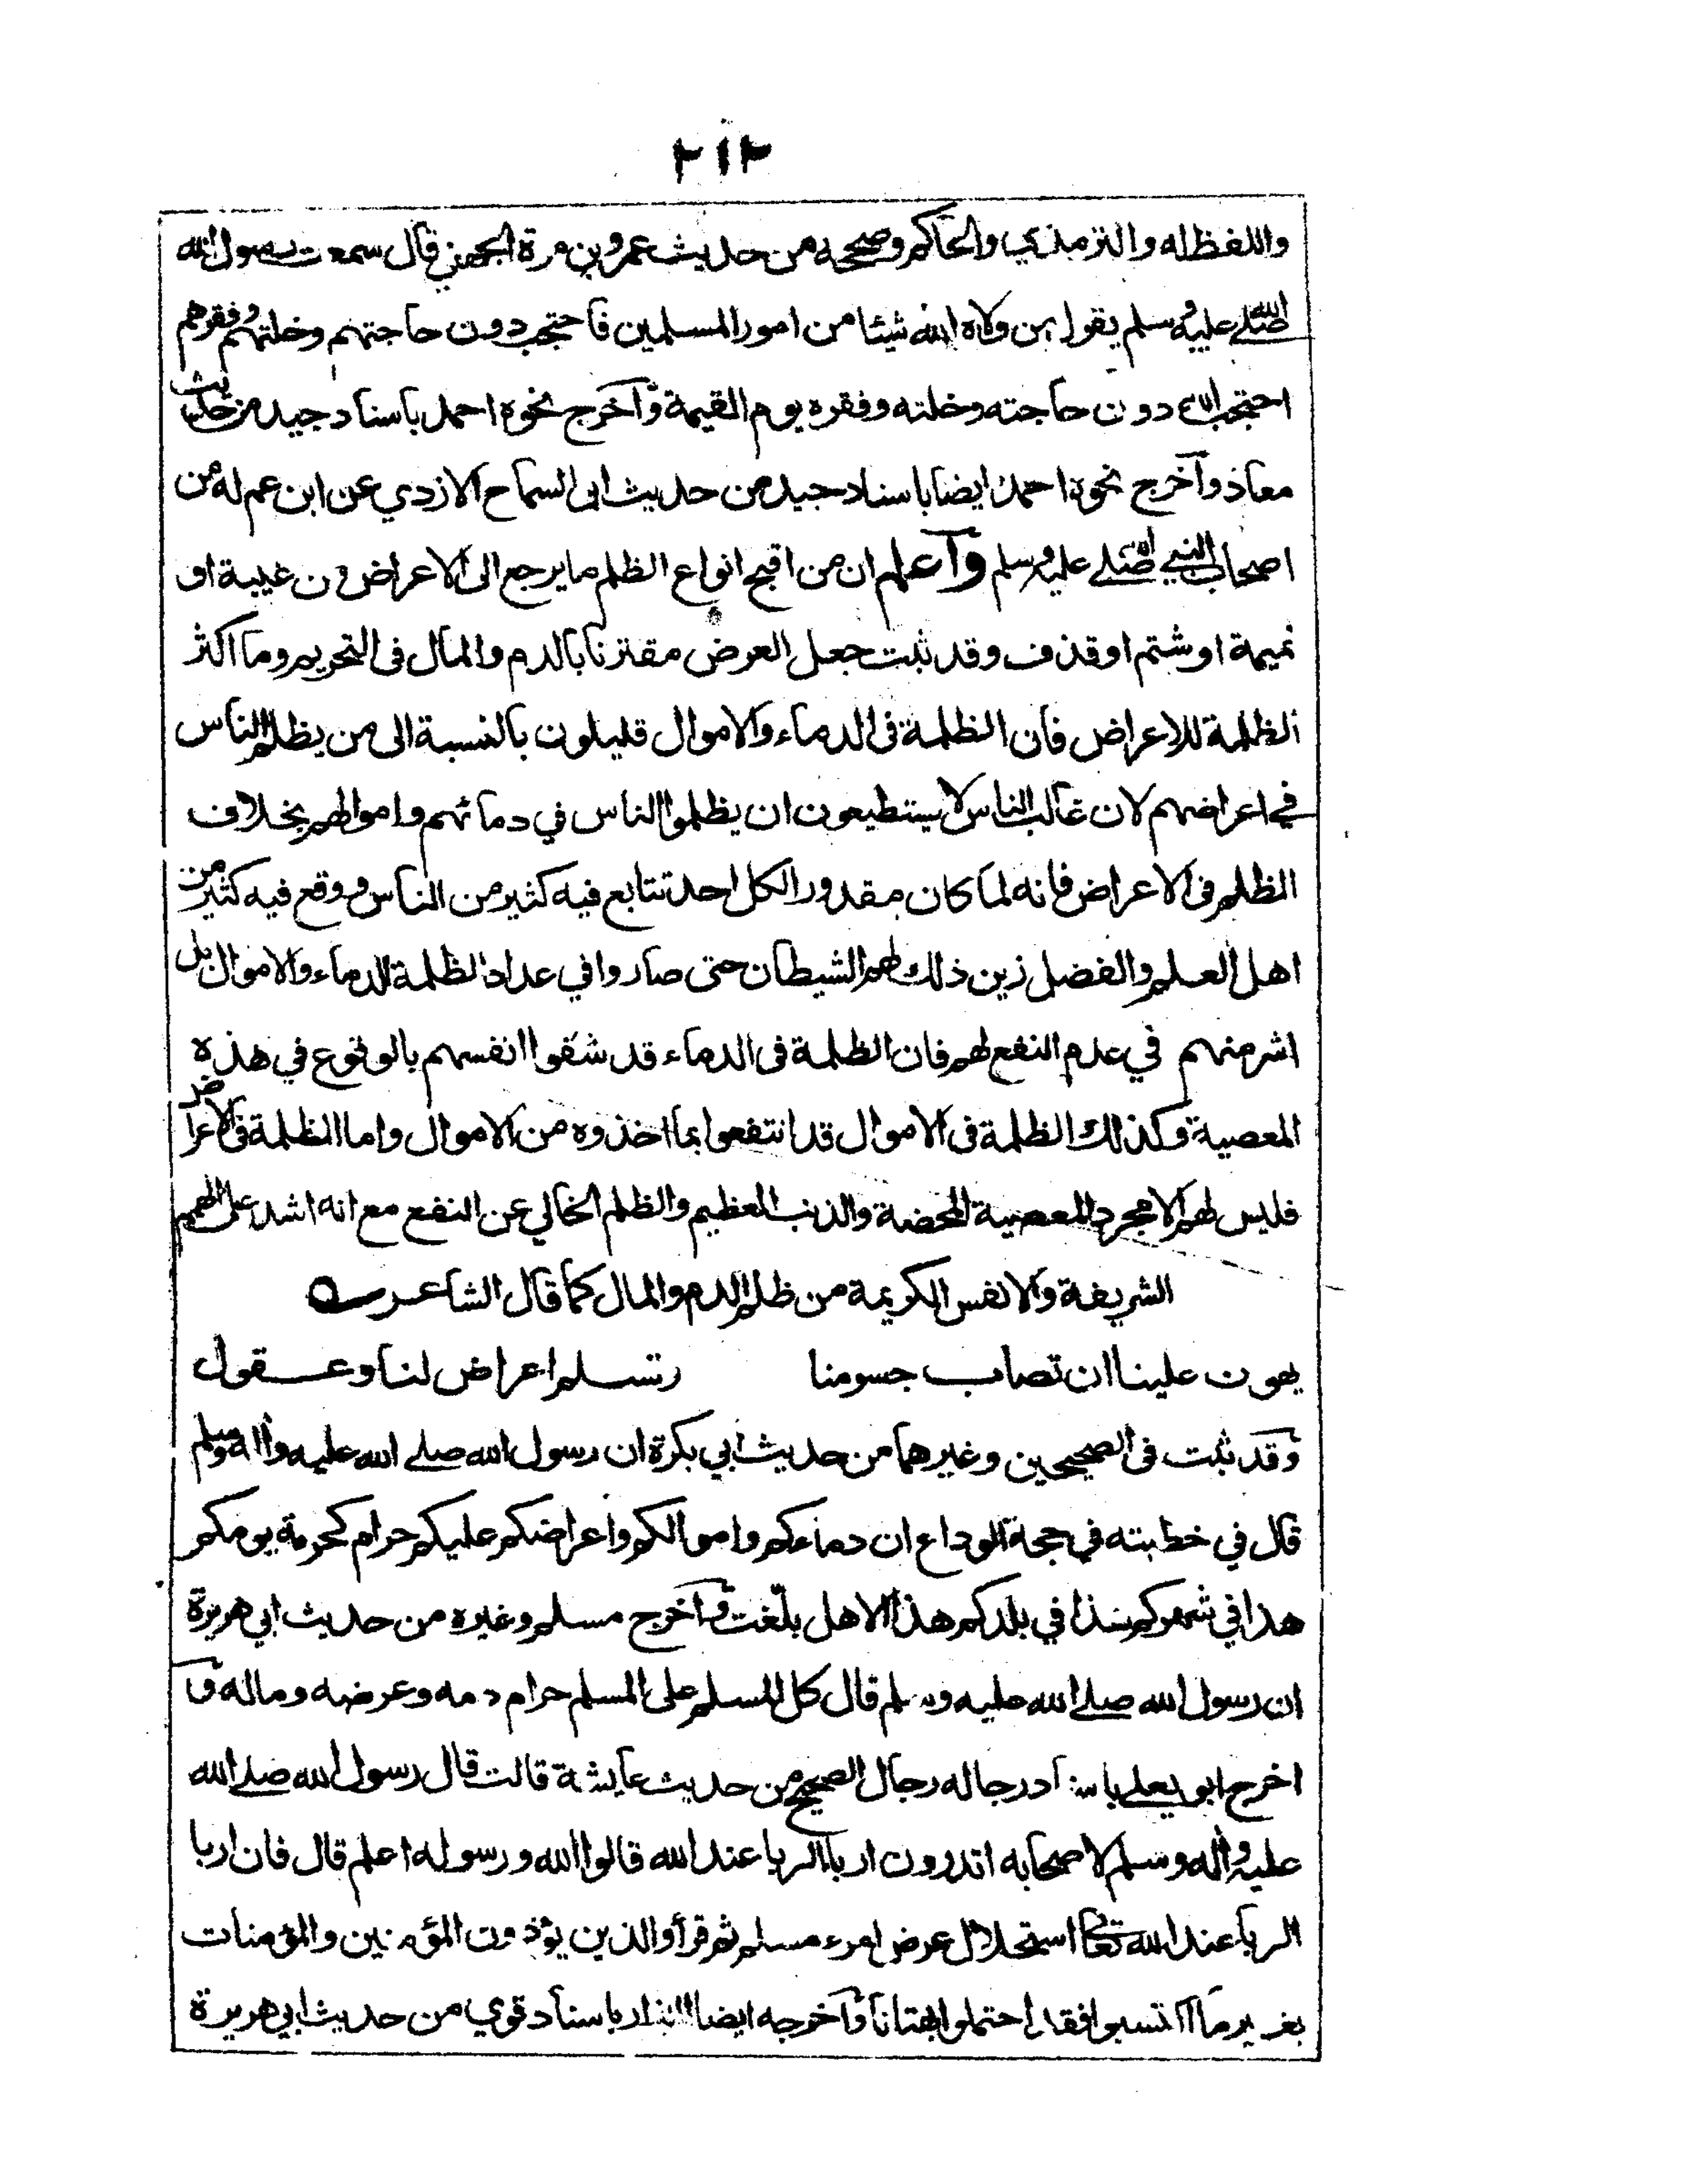 ٢١٢
واللفظ له والترمذي والحاكم وصححه من حديث عمرو بن مرة الجهني قال سمعت رسول الله
صلى الله عليه وسلم يقول من ولاه الله شيئا من امور المسلمين فاحتجب دون حاجتهم وخلتهم وفقرهم
احتجب الله دون حاجته وخلته وفقره يوم القيمة وآخرج نحوه احمد باسناد جيد من حديث
معاذ وآخرج نحوه احمد ايضا باسناد جيد من حديث ابى السماح الازدي عن ابن عم له من
اصحاب النبي صلى الله عليه وسلم وآعلم ان من اقبح انواع الظلم ما يرجع الى الاعراض من غيبة او
نميمة او شتم او قذف وقد ثبت جعل العرض مقترنا بالدم والمال فى التحريم وما اكثر
الظلمة للاعراض فان الظلمة فى الدماء والاموال قليلون بالنسبة الى من يظلم الناس
في اعراضهم لان غالب الناس لا يستطيعون ان يظلموا الناس في دمائهم واموالهم بخلاف
الظلم فى الاعراض فانه لما كان مقدورا لكل احد تتابع فيه كثير من الناس ووقع فيه كثير من
اهل العلم والفضل زين ذلك لهم الشيطان حتى صاروا في عداد الظلمة للدماء والاموال بل
اشر منهم في عدم النفع لهم فان الظلمة فى الدماء قد شفوا انفسهم بالوقوع في هذه
المعصية وكذلك الظلمة فى الاموال قد انتفعوا بما اخذوه من الاموال واما الظلمة فى الاعراض
فليس لهم الا مجرد المعصية المحضة والذنب العظيم والظلم الخالي عن النفع مع انه اشد على الهمم
الشريفة والانفس الكريمة من ظلم الدم والمال كما قال الشاعر
يهون علينا ان تصاب جسومنا وتسلم اعراض لنا وعقول
وقد ثبت فى الصحيحين وغيرهما من حديث ابي بكرة ان رسول الله صلے الله عليه وآله وسلم
قال في خطبته في حجة الوداع ان دماءكم واموالكم واعراضكم عليكم حرام كحرمة يومكم
هذا في شهركم هذا في بلدكم هذا الا هل بلّغت وآخرج مسلم وغيره من حديث ابي هريرة
ان رسول الله صلے الله عليه وسلم قال كل المسلم على المسلم حرام دمه وعرضه وماله وآ
اخرج ابو يعلے باسناد رجاله رجال الصحيح من حديث عايشة قالت قال رسول الله صلے الله
عليه وآله وسلم لاصحابه اتدرون اربا الربا عند الله قالوا الله ورسوله اعلم قال فان اربا
الربا عند الله تعالى استحلال عرض امرء مسلم ثم قرأ والذين يؤذون المؤمنين والمؤمنات
بغير ما اكتسبوا فقد احتملوا بهتانا وآخرجه ايضا البزار باسناد قوي من حديث ابي هريرة